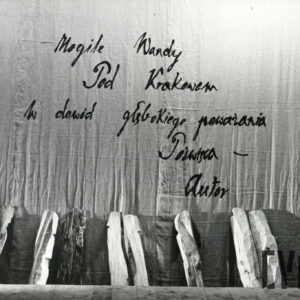 Mogile Wandy
Pod Krakowem
W dowód głębokiego poważania
Autor